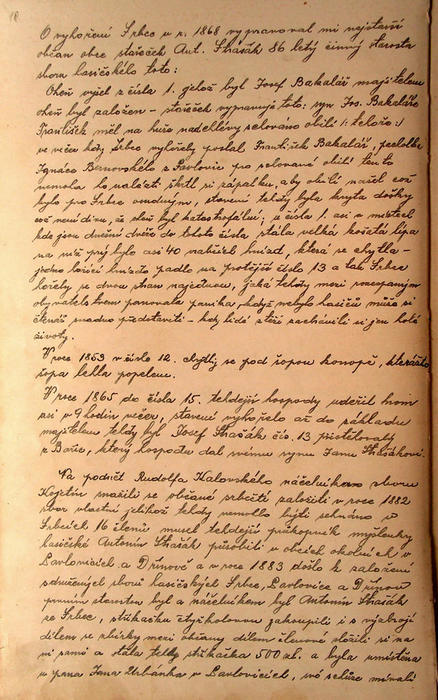 O vyhoření Srbec v r. 1868 vypravoval mi nejstarší
občan obce stařeček Ant. Skasák 86 letý činný starosta
sboru hasičského toto:
Oheň vyšel z čísla 1. jehož byl Josef Bakalář majitelem
oheň byl založen – stařeček vypravuje toto: syn Jos. Bakaláře
František měl na hůře nad chlévy schováno obilí
ve večer kdy Srbce vyhořely poslal František Bakalář, pacholka
Ignáce Brnovského z Pavlovic pro schované obilí tento
nemoha to nalézti škrtl si zápalku, aby obilí našel což
bylo pro Srbce osudným, stavení tehdy byla kryta došky
což není divu, že oheň byl katastrofální; u čísla 1. asi v místech
kde jsou dnešní dvéře do tohoto čísla stála velká košatá lípa
na níž prý bylo asi 40 vrabčích hnízd, která se chytla –
jedno hořící hnízdo padlo na protější číslo 13 a tak Srbce
hořely se dvou stran najednou, jaká tehdy mezi
obyvatelstvem panovala panika, když nebylo hasičů může si
čtenář snadno představiti – kdy lidé stěží zachránili si jen holé
životy.
V roce 1853 v čísle 12. chytly se pod šopou konopě,
šopa lehla popelem.
V roce 1865 do čísla 15. tehdejší hospody udeřil hrom
asi v 9 hodin večer, stavení vyhořelo až do základu
majitelem tehdy byl Josef Skasák čís. 13
z Bařic, který hospodu dal svému synu Janu
Na podnět Rudolfa Kalovského náčelníka sboru
Kojetín snažili se občané srbečtí založiti v roce 1882
sbor vlastní jelikož tehdy nemohlo býti sehnáno v
Srbcích 16 členů musel tehdejší průkopník myšlenky
hasičské Antonín Skasák působiti v obcích okolních v
Pavlovicích a Dřínově a v roce 1883 došlo k založení
sdružených sborů hasičských Srbce, Pavlovice a Dřínov
prvním starostou byl a náčelníkem byl Antonín Skasák
ze Srbec, stříkačku čtyřkolovou zakoupili i s výzbrojí
dílem ze sbírky mezi občany dílem členové složili si na
ni sami a stála tehdy stříkačka 500 zl. a byla umístěna
u pana Jana Urbánka v Pavlovicích,